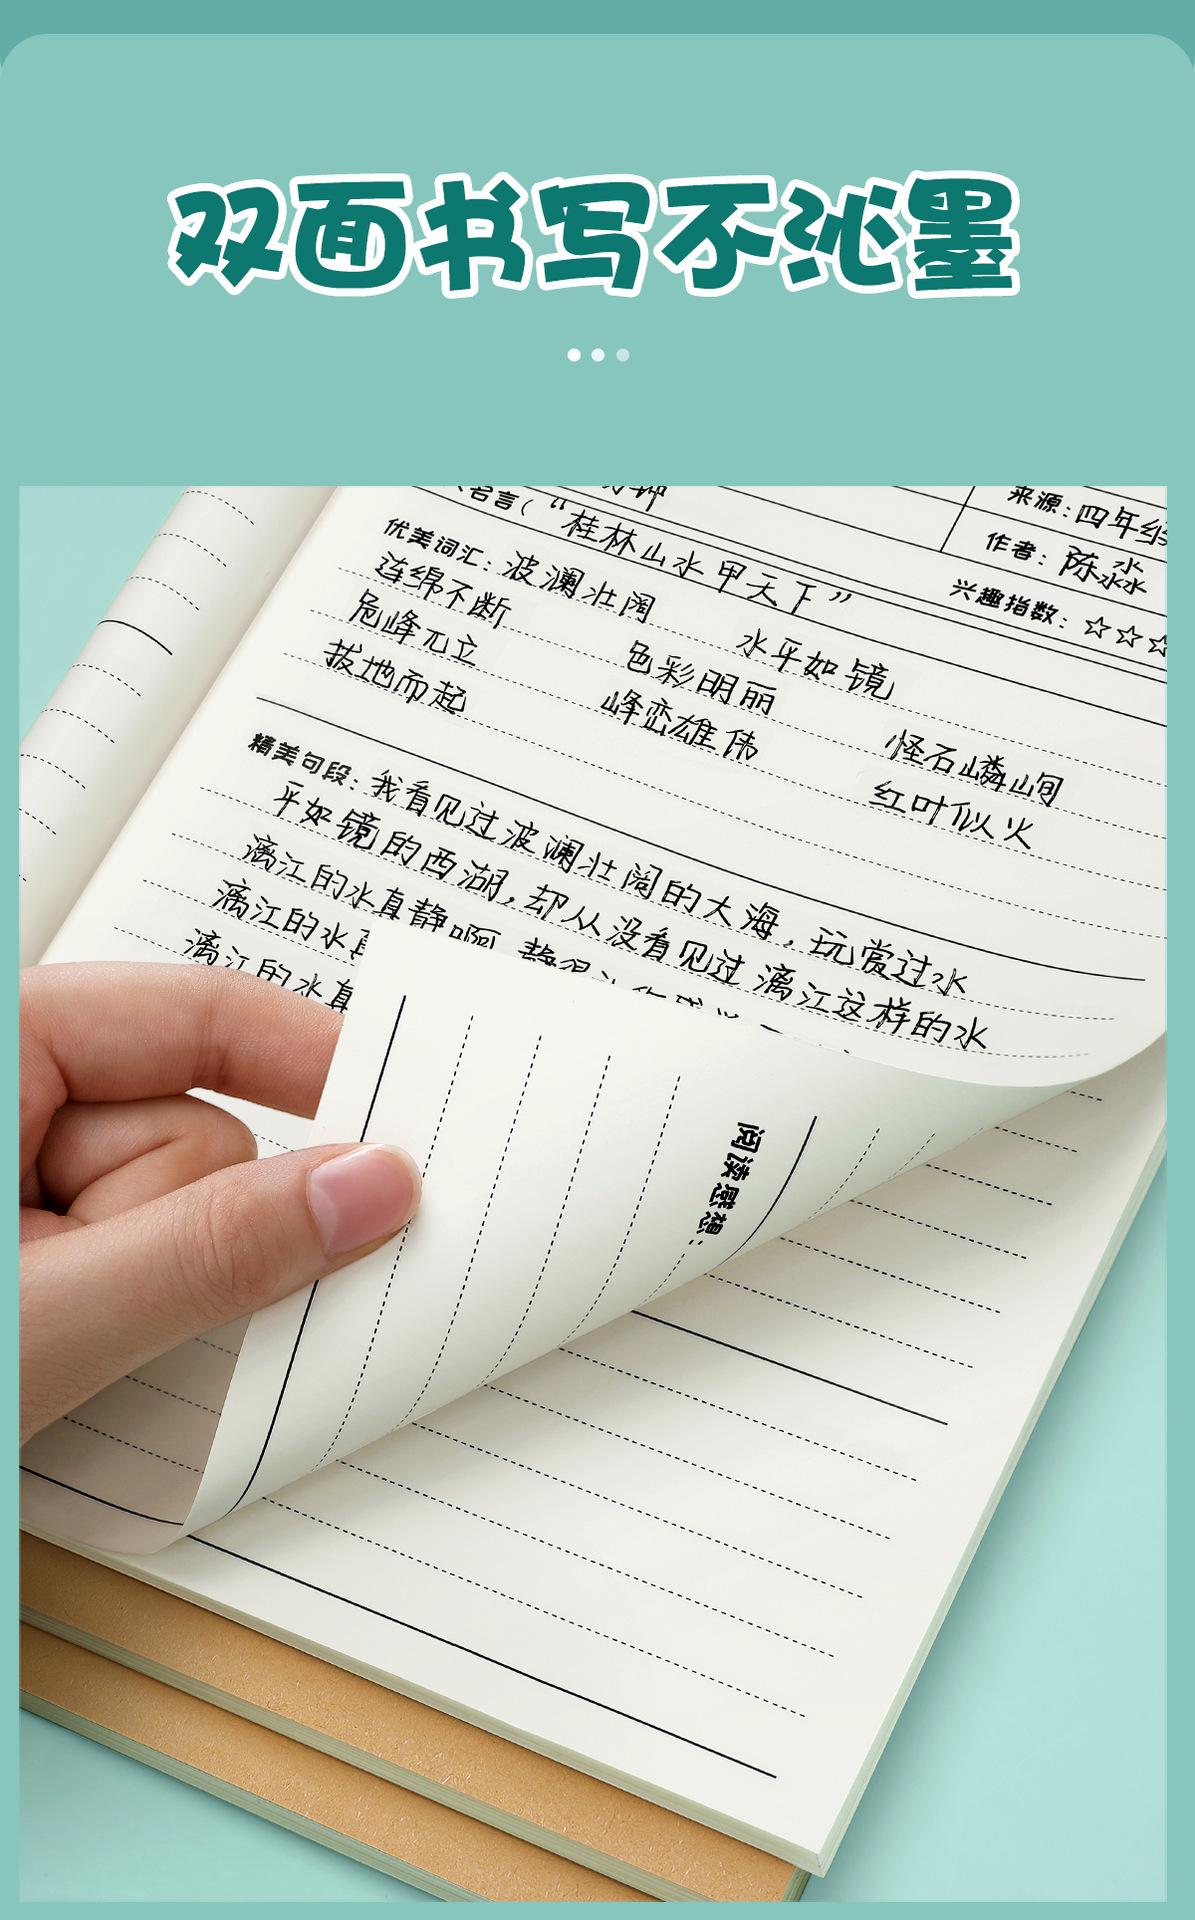 双面书写不沁墨
来源:四年级
名言("桂林山水甲天下"
作者:陈淼淼
兴趣指数:☆☆☆
优美词汇:波澜壮阔 水平如镜
连绵不断 色彩明丽 怪石嶙峋
危峰兀立 峰峦雄伟 红叶似火
拔地而起
精美句段:我看见过波澜壮阔的大海,玩赏过水
平如镜的西湖,却从没看见过漓江这样的水
漓江的水真静啊
漓江的水真
漓江的水真
阅读感想: